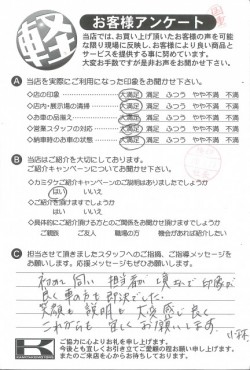 軽
お客様アンケート
当店では、お買い上げ頂いたお客様の声を可能
な限り現場に反映し、お客様により良い商品と
サービスを提供する事に努めています。
大変お手数ですが是非お声をお聞かせ下さい。
A 当店を実際にご利用になった印象をお聞かせ下さい。
◇店の印象 大満足 満足 ふつう やや不満 不満
◇店内・展示場の清掃 大満足 満足 ふつう やや不満 不満
◇お車の品揃え 大満足 満足 ふつう やや不満 不満
◇営業スタッフの対応 大満足 満足 ふつう やや不満 不満
◇納車時のお車の状態 大満足 満足 ふつう やや不満 不満
B 当店はご紹介を大切にしております。
ご紹介キャンペーンについてお聞かせ下さい。
◇カミタケご紹介キャンペーンのご説明はありましたでしょうか
はい いいえ
◇ご紹介を頂けますでしょうか
はい いいえ
◇具体的にご紹介頂ける方との関係をお聞かせ頂けますでしょうか
ご親族 ご友人 職場の方 機会があれば紹介したい
C 担当させて頂きましたスタッフへのご指摘、ご指導メッセージを
お願いします。応援メッセージもぜひお願いします。
初めに伺い 担当者が 印象が
良く車の方も即決でした。
笑顔も説明も大変感じ良く
これからも宜しくお願いします。
小林
ご協力に心よりお礼を申し上げます。
今後とも宜しくお引き立てご愛顧の程お願い申し上げます。
またのご来店を心からお待ちしております。